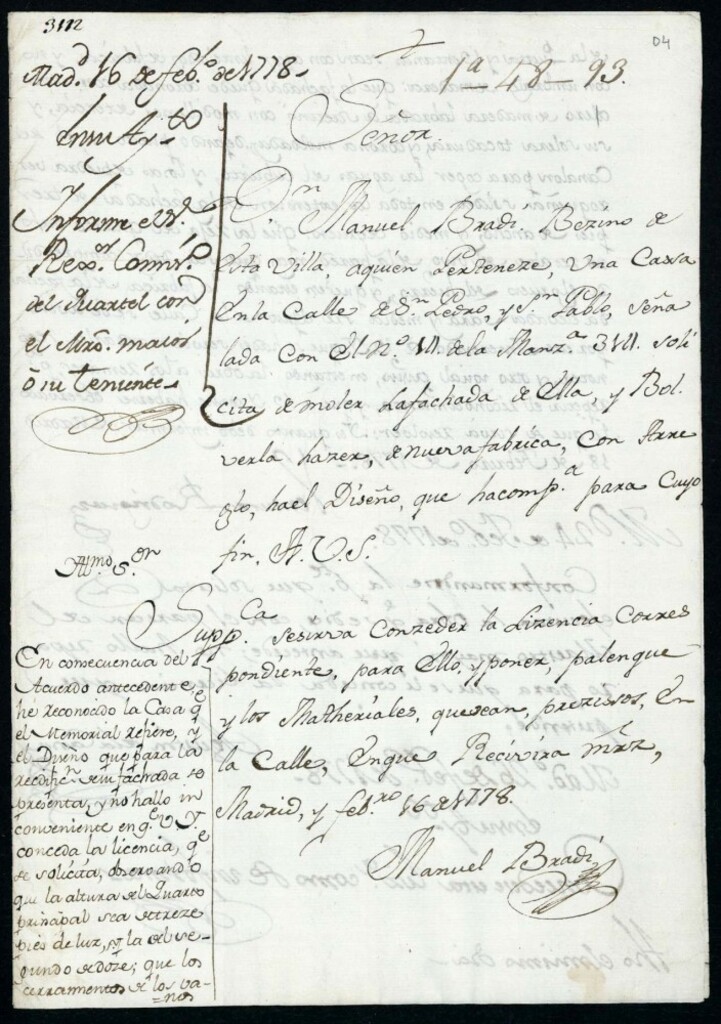 3112
04
Mad.d 16 de feb.o de 1778.
1a - 48 - 93.
En su Ay.to
Señor.
y
Informe el S.
Rex.or Comis.o
del Quartel con
el Mro. maior
ò su teniente
D.n Manuel Bradi Bezino de
esta Villa, aquien Perteneze, Una Cassa
Enla Calle de S.n Pedro, y S.n Pablo, Seña
lada Con El N.o 11 de la Manz.a 311. soli
cita demoler Lafachada de Ella, y Bol
verla hazer, de nueva fabrica, con Arre
glo, hael Diseño, que hacomp.a para Cuyo
fin, A. V. S.
Supp.ca sesirva Conzeder la Lizencia Corres
pondiente, para Ello, y poner, palenque
y los Matheriales, quesean, prezissos, En
la Calle, Enque Recivira mrz,
Madrid, y feb.ro 16 de 1778.
Manuel Bradi
Illmo S.or
En consecuencia del
Acuerdo antecedente,
hé reconocido la Casa q.e
el Memorial refiere, y
el Diseño que para la
reedific.n de su fachada se
presenta, y no hallo in
conveniente en q.e V. S.
conceda la licencia, q.e
se solicita, observando
que la altura del Quarto
principal sea de treze
pies de luz, y la del se-
gundo de doze; que los
cerramientos de los va-
nos